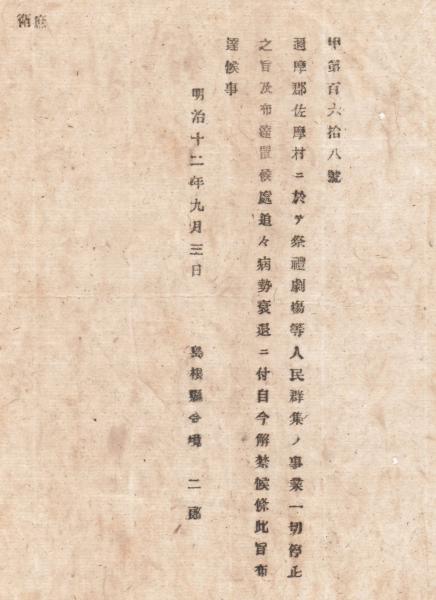 庶衛
甲第百六拾八號
邇摩郡佐摩村ニ於テ祭禮劇塲等人民群集ノ事業一切停止
之旨及布達置候處追々病勢衰退ニ付自今解禁候條此旨布
達候事
明治十二年九月三日　島根縣令境　二郎